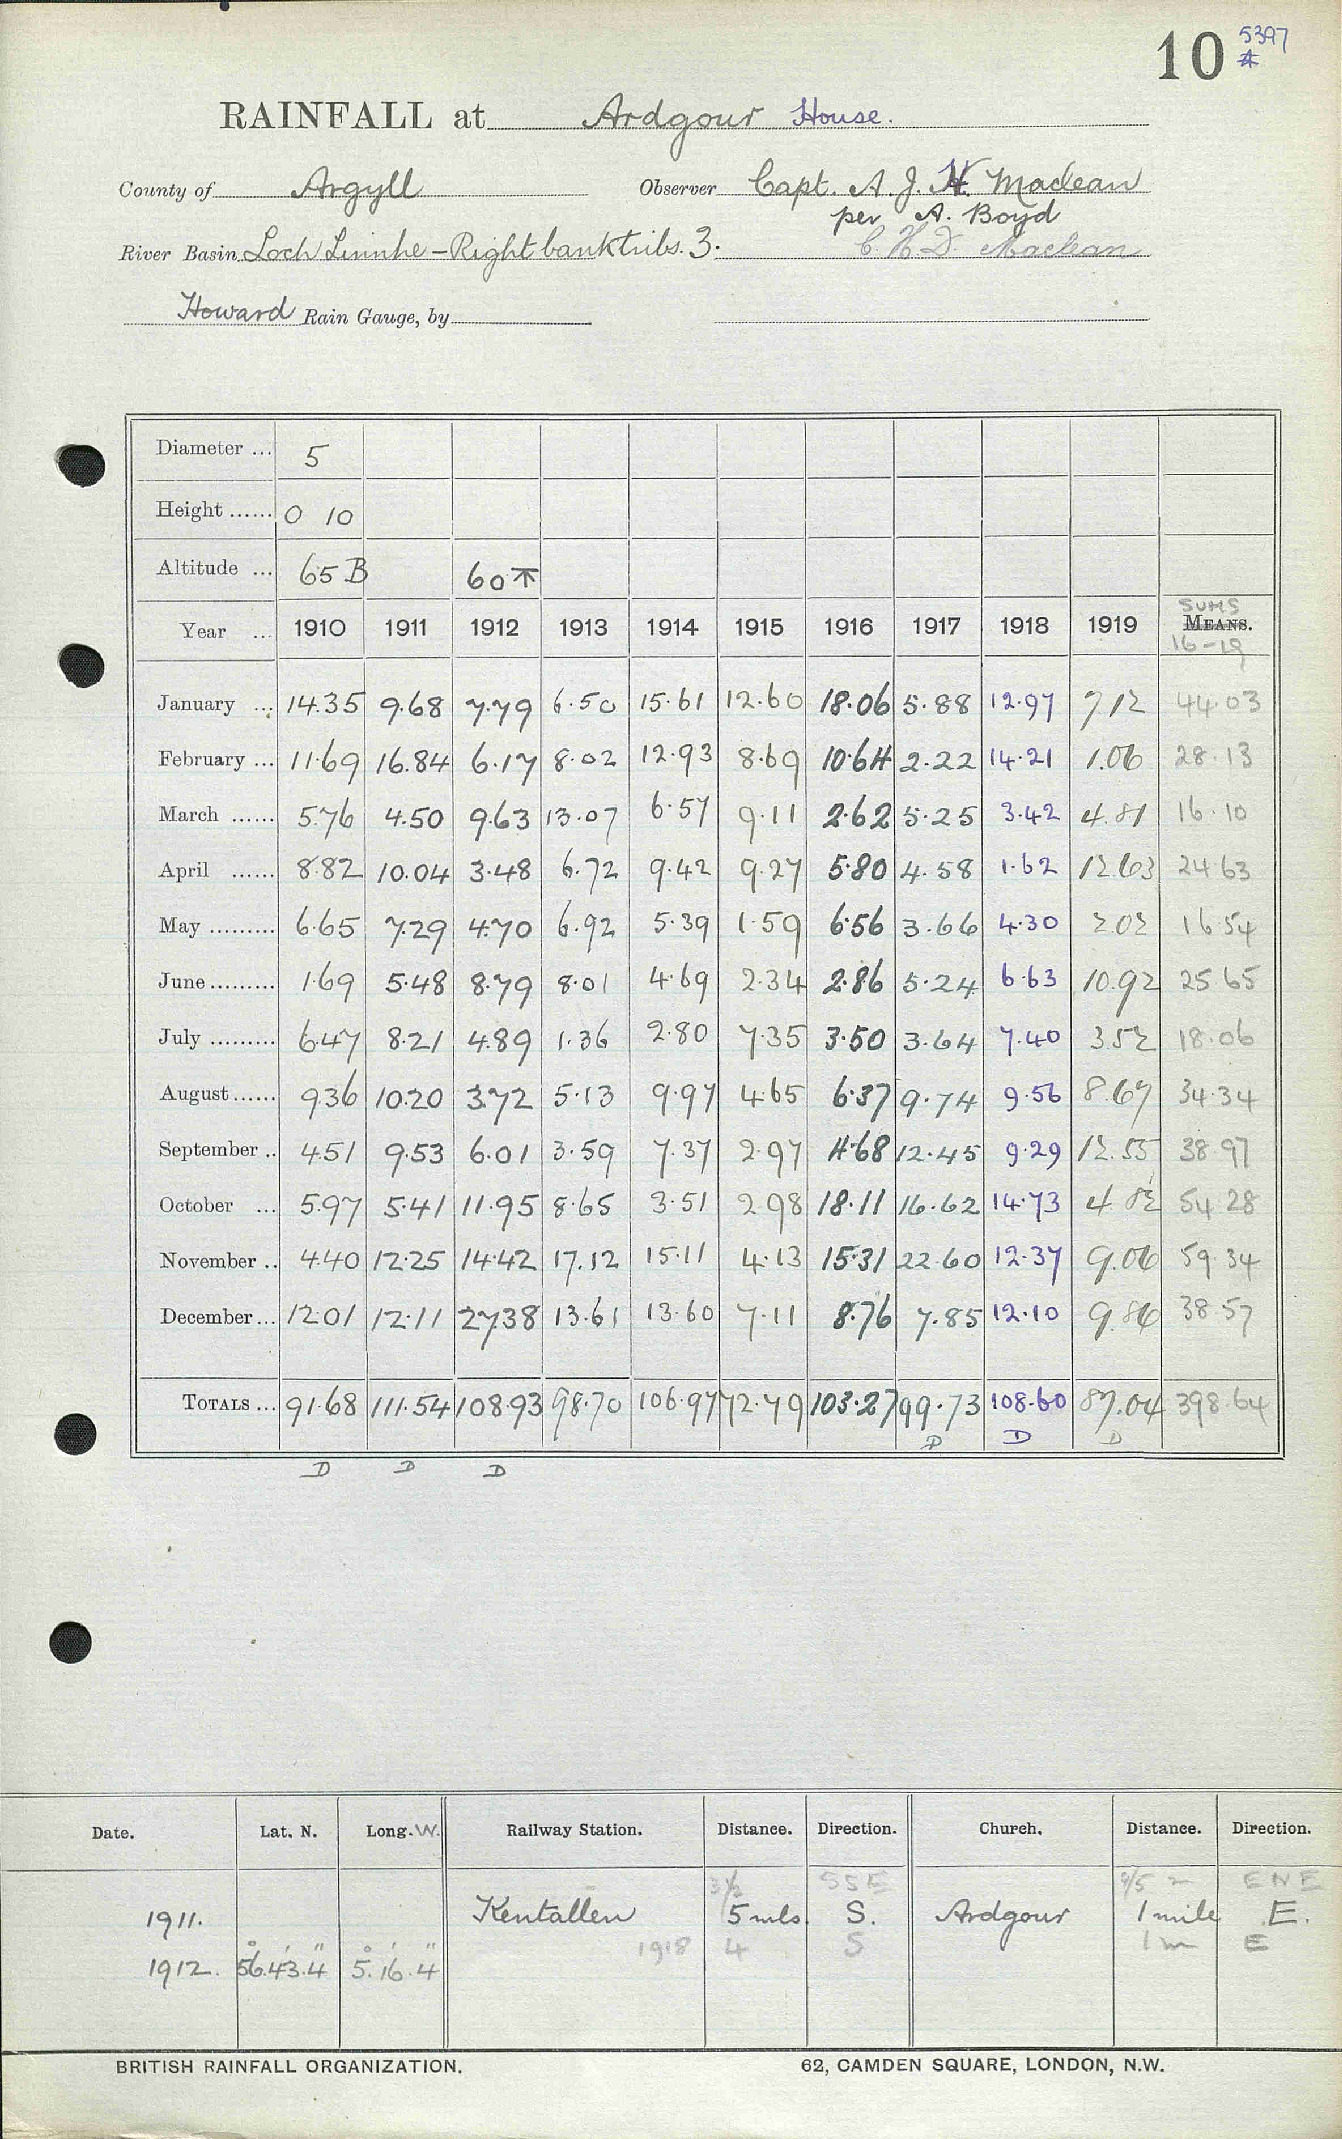 10 5397
RAINFALL at Ardgour House.
County of Argyll Observer Capt. A. J. H. Maclean
per A. Boyd
River Basin Loch Linnhe – Right bank tribs. 3. C. H. D. Maclean
Howard Rain Gauge, by
Diameter ... 5
Height ...... 0 10
Altitude ... 65 B 60 ⊼
SUMS
Year ... 1910 1911 1912 1913 1914 1915 1916 1917 1918 1919 MEANS.
16-19
January ... 14.35 9.68 7.79 6.50 15.61 12.60 18.06 5.88 12.97 7.12 44.03
February ... 11.69 16.84 6.17 8.02 12.93 8.69 10.64 2.22 14.21 1.06 28.13
March ...... 5.76 4.50 9.63 13.07 6.57 9.11 2.62 5.25 3.42 4.81 16.10
April ...... 8.82 10.04 3.48 6.72 9.42 9.27 5.80 4.58 1.62 12.63 24.63
May ......... 6.65 7.29 4.70 6.92 5.39 1.59 6.56 3.66 4.30 2.02 16.54
June ......... 1.69 5.48 8.79 8.01 4.69 2.34 2.86 5.24 6.63 10.92 25.65
July ......... 6.47 8.21 4.89 1.36 2.80 7.35 3.50 3.64 7.40 3.52 18.06
August ...... 9.36 10.20 3.72 5.13 9.97 4.65 6.37 9.74 9.56 8.67 34.34
September .. 4.51 9.53 6.01 3.59 7.37 2.97 4.68 12.45 9.29 12.55 38.97
October ... 5.97 5.41 11.95 8.65 3.51 2.98 18.11 16.62 14.73 4.82 54.28
November .. 4.40 12.25 14.42 17.12 15.11 4.13 15.31 22.60 12.37 9.06 59.34
December ... 12.01 12.11 27.38 13.61 13.60 7.11 8.76 7.85 12.10 9.86 38.57
TOTALS ... 91.68 111.54 108.93 98.70 106.97 72.79 103.27 99.73 108.60 87.04 398.64
D D D
D D D
Date. Lat. N. Long. W. Railway Station. Distance. Direction. Church. Distance. Direction.
3½ SSE ENE
1911. Kentallen 5 mls. S. Ardgour 1 mile E.
1918 4 S 1 m E
1912. 56° 43' 4" 5° 16' 4"
BRITISH RAINFALL ORGANIZATION. 62, CAMDEN SQUARE, LONDON, N.W.